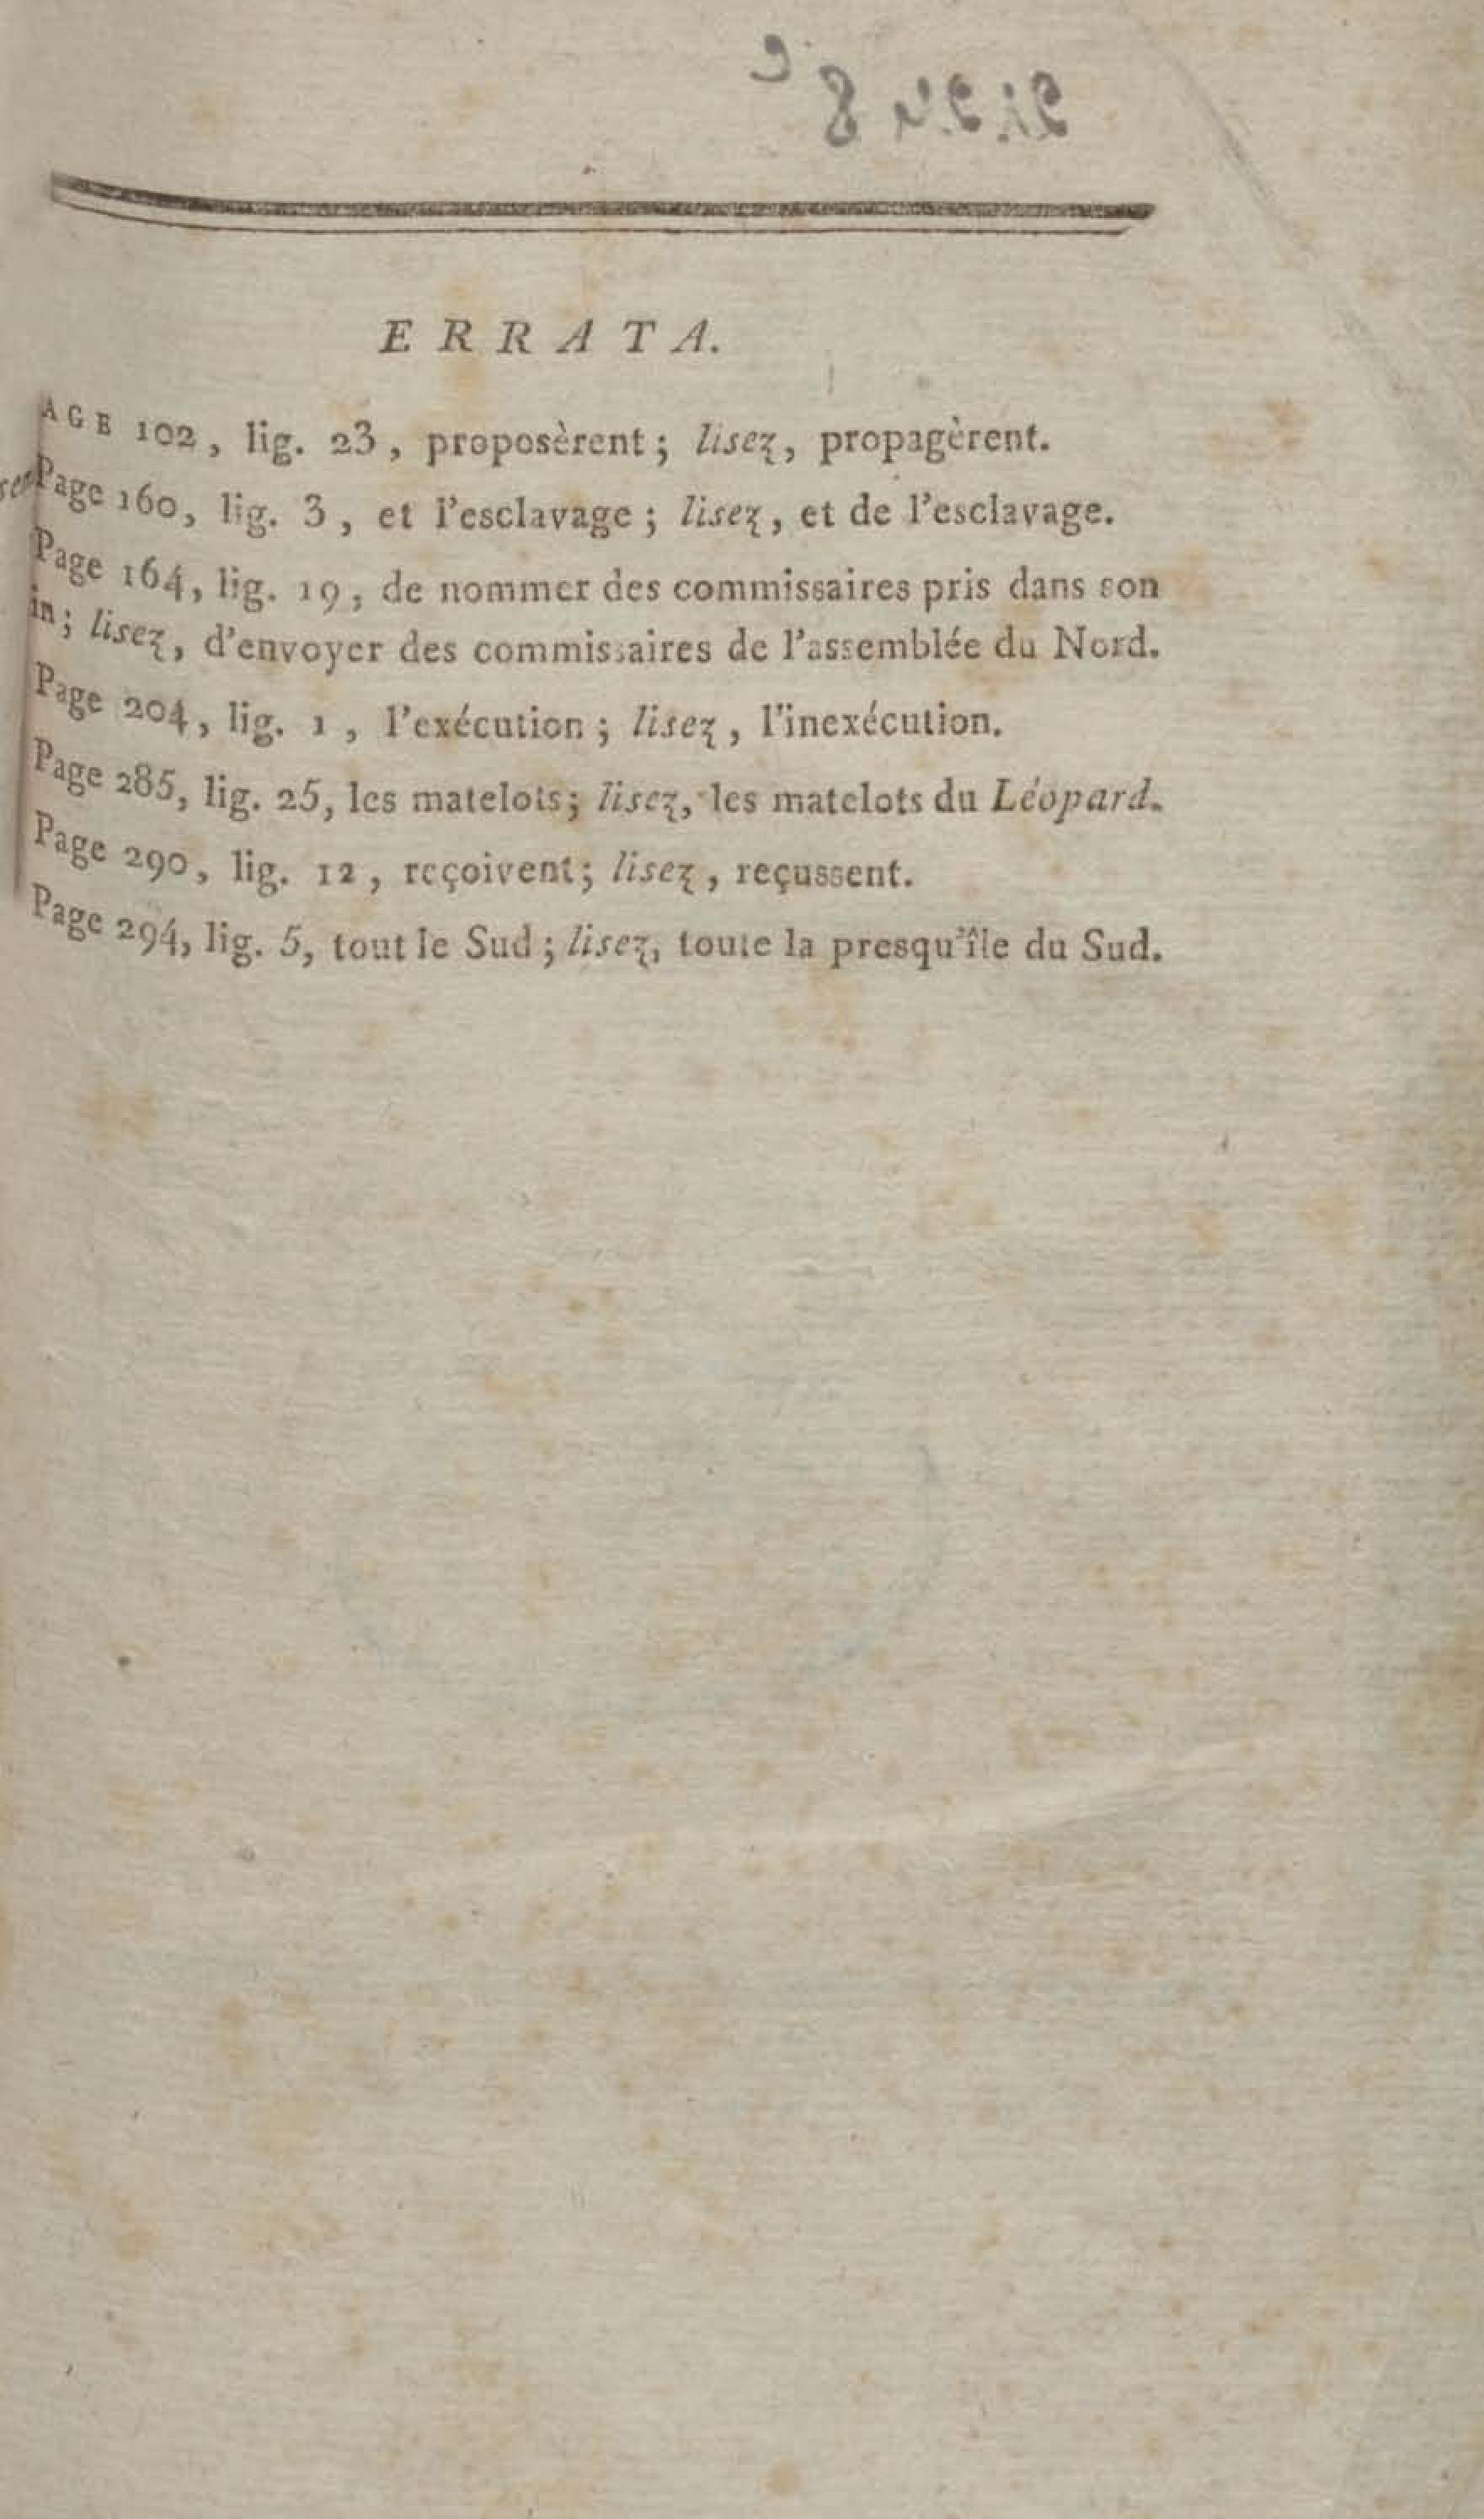 ERRATA.
AGE 102, lig. 23, proposèrent; lisez, propagèrent.
Page 160, lig. 3, et l'esclavage; lisez, et de l'esclavage.
Page 164, lig. 19, de nommer des commissaires pris dans son
in; lisez, d'envoyer des commissaires de l'assemblée du Nord.
Page 204, lig. 1, l'exécution; lisez, l'inexécution.
Page 285, lig. 25, les matelots; lisez, les matelots du Léopard.
Page 290, lig. 12, reçoivent; lisez, reçussent.
Page 294, lig. 5, tout le Sud; lisez, toute la presqu'île du Sud.